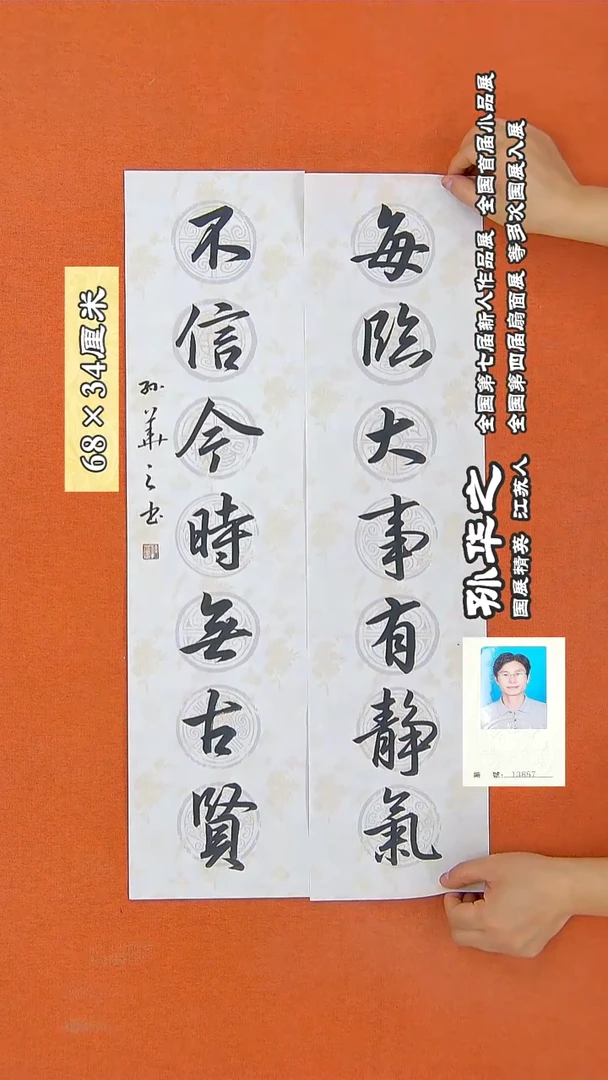 每臨大事有静氣
不信今時無古賢
孙華之书
68×34厘米
全国第七届新人作品展 全国首届小品展
全国第四届扇面展 等多次国展入展
孙华之
国展精英 江苏人
13867